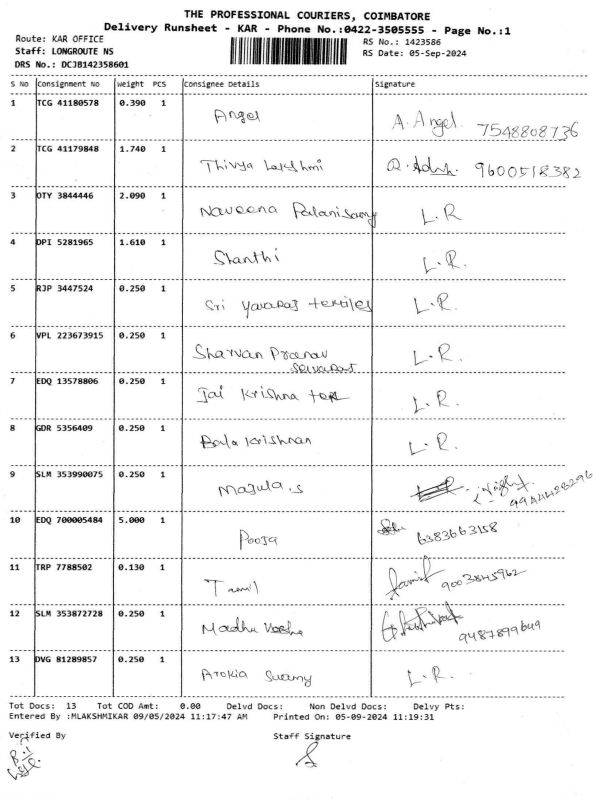 THE PROFESSIONAL COURIERS, COIMBATORE
Delivery Runsheet - KAR - Phone No.:0422-3505555 - Page No.:1
Route: KAR OFFICE RS No.: 1423586
Staff: LONGROUTE NS RS Date: 05-Sep-2024
DRS No.: DCJB142358601
S No Consignment No Weight PCS Consignee Details Signature
1 TCG 41180578 0.390 1 Angel A. Angel. 7548808736
2 TCG 41179848 1.740 1 Thivya Lakshmi 9600518382
3 OTY 3844446 2.090 1 Naveena Palanisamy L.R
4 DPI 5281965 1.610 1 Shanthi L.R.
5 RJP 3447524 0.250 1 Sri Yavaraj textiles L.R.
6 VPL 223673915 0.250 1 Sharvan Pranav L.R.
Selvaraj
7 EDQ 13578806 0.250 1 Jai Krishna tex L.R.
8 GDR 5356409 0.250 1 Bala Krishnan L.R.
9 SLM 353990075 0.250 1 Majula.s L.R.
10 EDQ 700005484 5.000 1 Pooja 6383663158
11 TRP 7788502 0.130 1 Tamil 9003845962
12 SLM 353872728 0.250 1 Madhu 9487899649
13 DVG 81289857 0.250 1 Arokia Swamy L.R.
Tot Docs: 13 Tot COD Amt: 0.00 Delvd Docs: Non Delvd Docs: Delvy Pts:
Entered By :MLAKSHMIKAR 09/05/2024 11:17:47 AM Printed On: 05-09-2024 11:19:31
Verified By Staff Signature